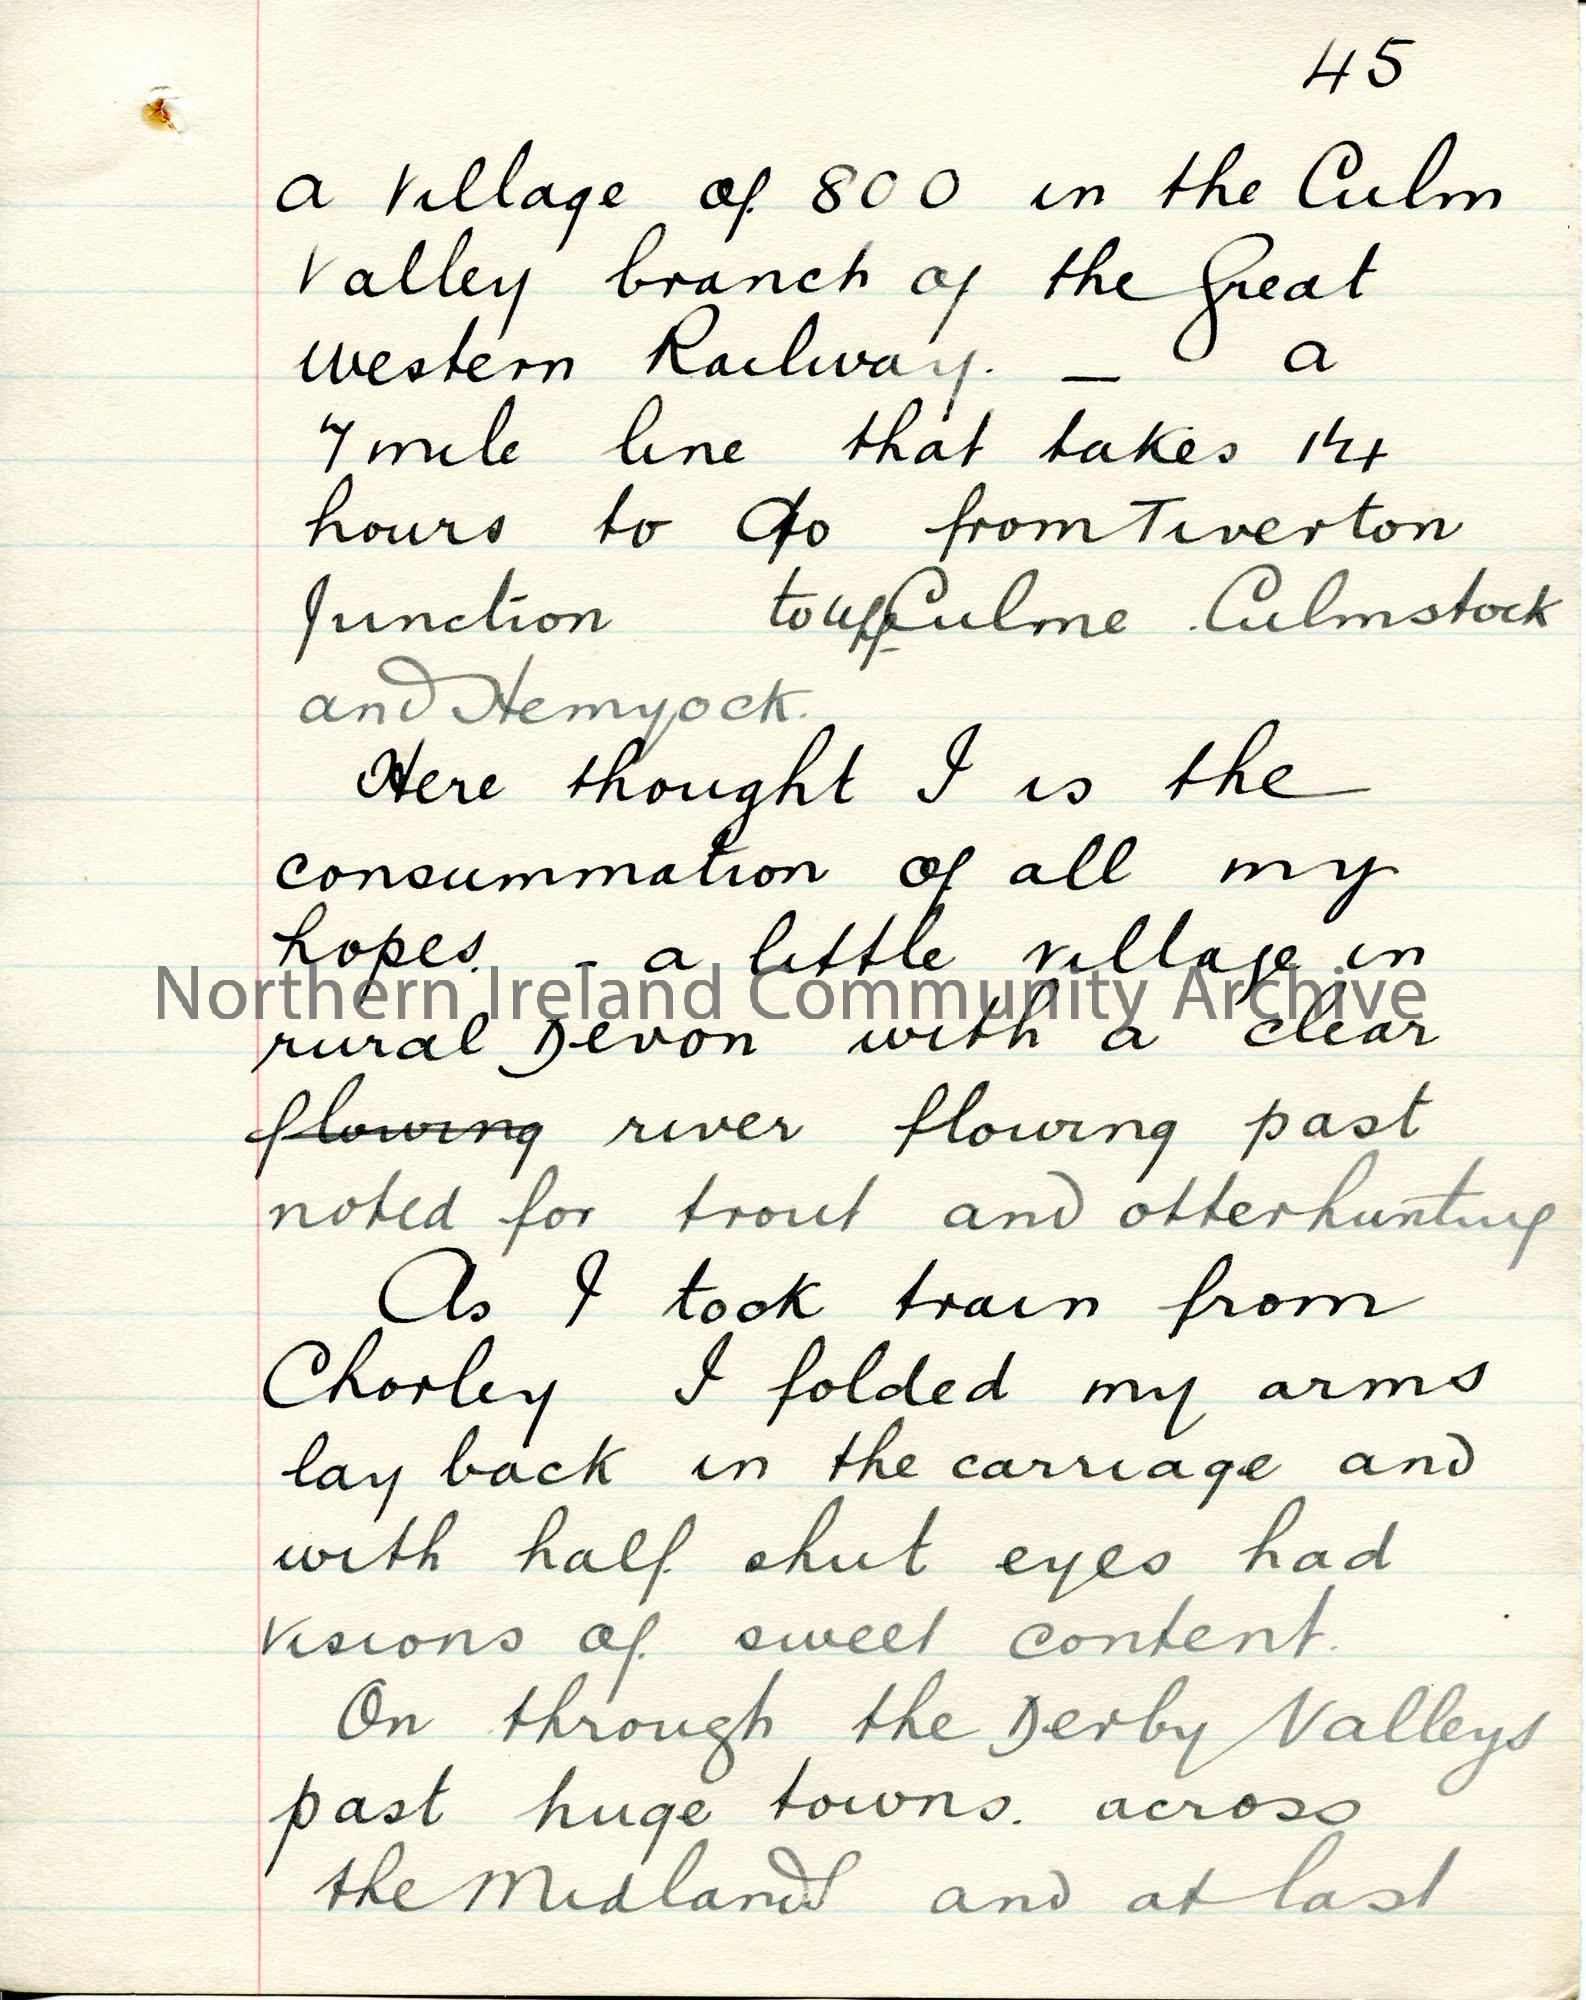 45
a village of 800 in the Culm
Valley branch of the Great
Western Railway. — a
7 mile line that takes 1¼
hours to go from Tiverton
Junction to Uffculme Culmstock
and Hemyock.
Here thought I is the
consummation of all my
hopes. - a little village in
Northern Ireland Community Archive
rural Devon with a clear
flowing river flowing past
noted for trout and otterhunting
As I took train from
Chorley I folded my arms
lay back in the carriage and
with half shut eyes had
visions of sweet content.
On through the Derby Valleys
past huge towns. across
the Midlands and at last